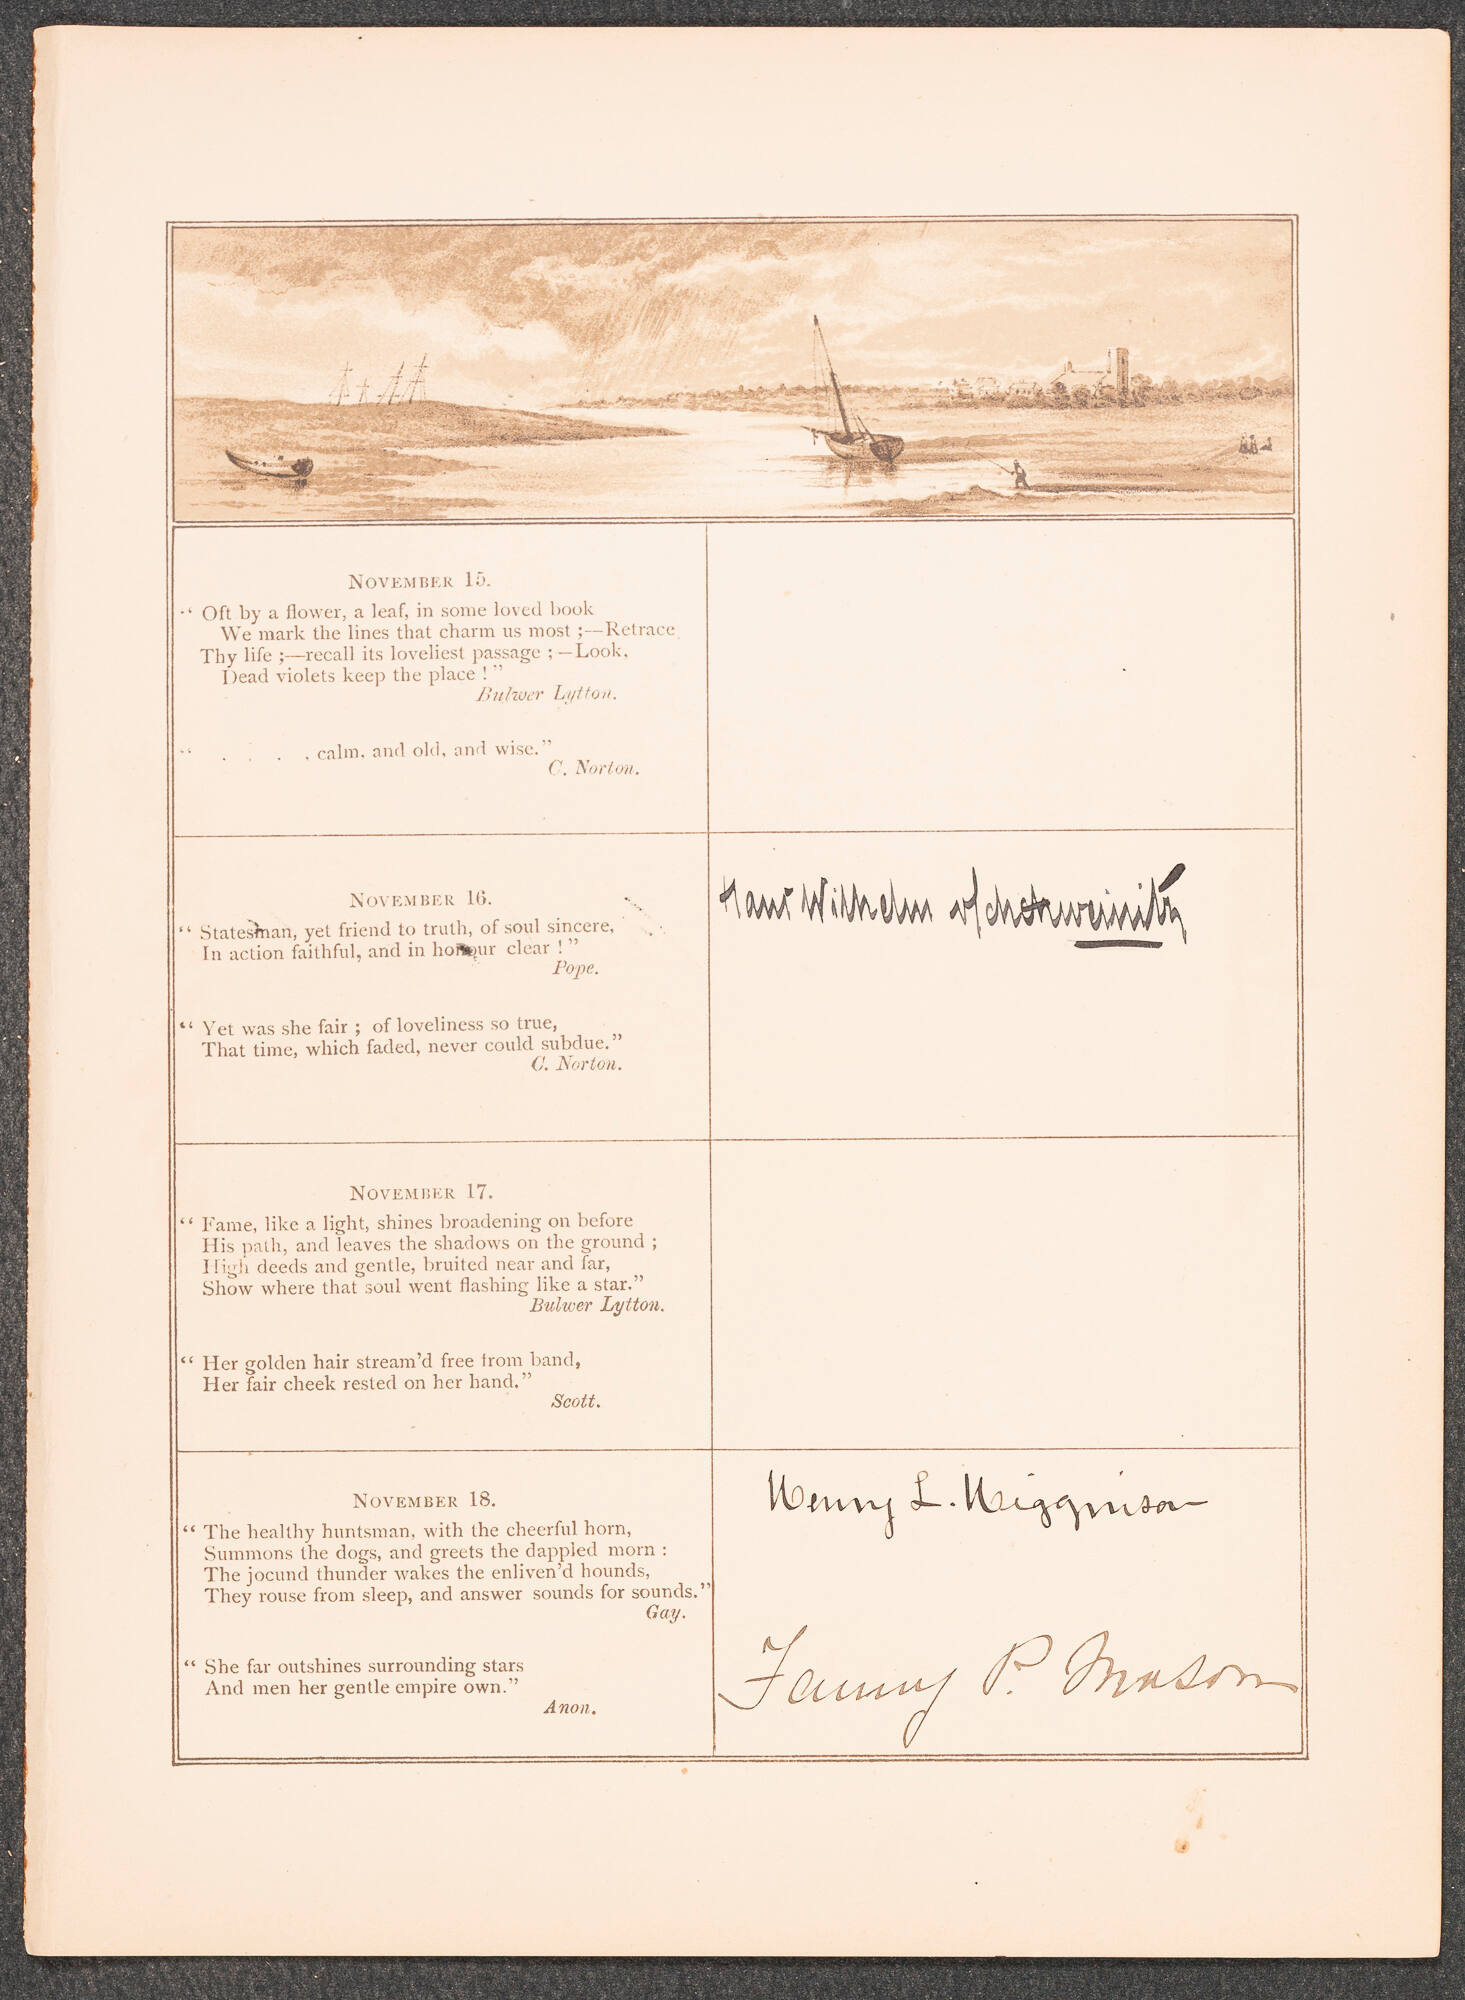 NOVEMBER 15.
“ Oft by a flower, a leaf, in some loved book
We mark the lines that charm us most ;—Retrace
Thy life ;—recall its loveliest passage ;—Look,
Dead violets keep the place ! ”
Bulwer Lytton.
“ . . . . calm, and old, and wise.”
C. Norton.
NOVEMBER 16.
“ Statesman, yet friend to truth, of soul sincere,
In action faithful, and in honour clear ! ”
Pope.
“ Yet was she fair ; of loveliness so true,
That time, which faded, never could subdue.”
C. Norton.
Hans Wilhelm
NOVEMBER 17.
“ Fame, like a light, shines broadening on before
His path, and leaves the shadows on the ground ;
High deeds and gentle, bruited near and far,
Show where that soul went flashing like a star.”
Bulwer Lytton.
“ Her golden hair stream’d free from band,
Her fair cheek rested on her hand.”
Scott.
NOVEMBER 18.
“ The healthy huntsman, with the cheerful horn,
Summons the dogs, and greets the dappled morn :
The jocund thunder wakes the enliven’d hounds,
They rouse from sleep, and answer sounds for sounds.”
Gay.
“ She far outshines surrounding stars
And men her gentle empire own.”
Anon.
Henry L. Higginson
Fanny P. Mason